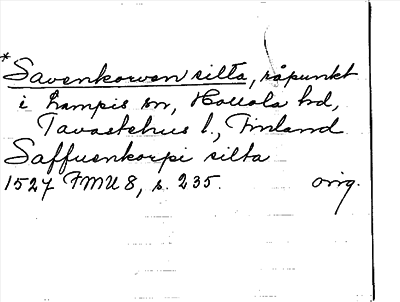 * Savenkorven silta, råpunkt
i Lampis sn, Hollola hd,
Tavastehus l., Finland
Saffuenkorpi silta
1527 FMU 8, s. 235. orig.